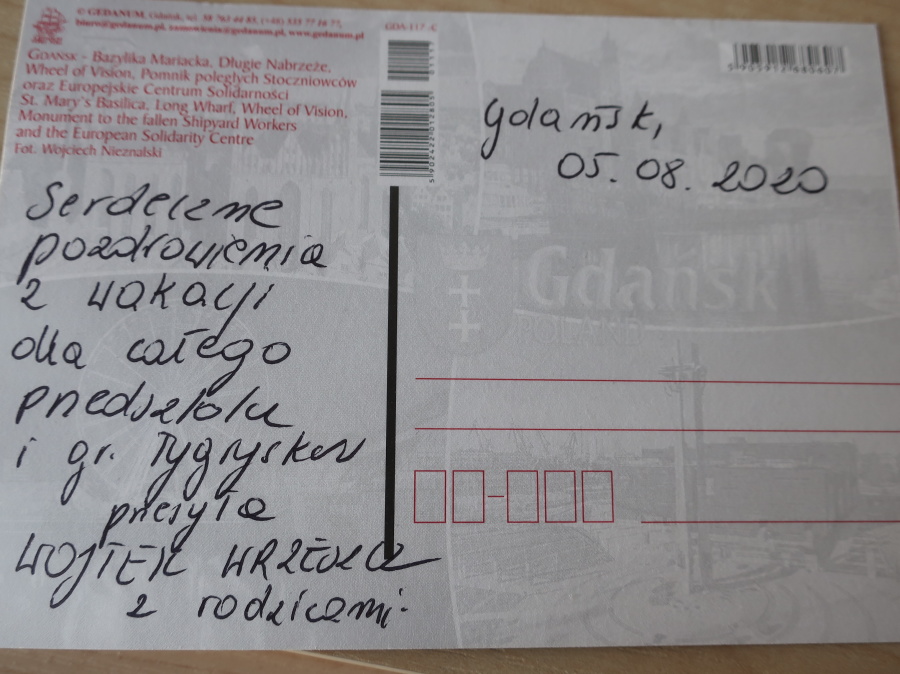 © GEDANUM, Gdańsk, tel. 58 763 44 85, (+48) 533 77 16 77,
biuro@gedanum.pl, zamowienia@gedanum.pl, www.gedanum.pl
GDAŃSK - Bazylika Mariacka, Długie Nabrzeże,
Wheel of Vision, Pomnik poległych Stoczniowców
oraz Europejskie Centrum Solidarności
St. Mary's Basilica, Long Wharf, Wheel of Vision,
Monument to the fallen Shipyard Workers
and the European Solidarity Centre
Fot. Wojciech Nieznalski
GDA-117-C
Gdańsk,
05.08.2020
Serdeczne
pozdrowienia
z wakacji
dla całego
przedszkola
i gr. Tygrysków
przesyła
WOJTEK
z rodzicami.
Gdańsk
POLAND